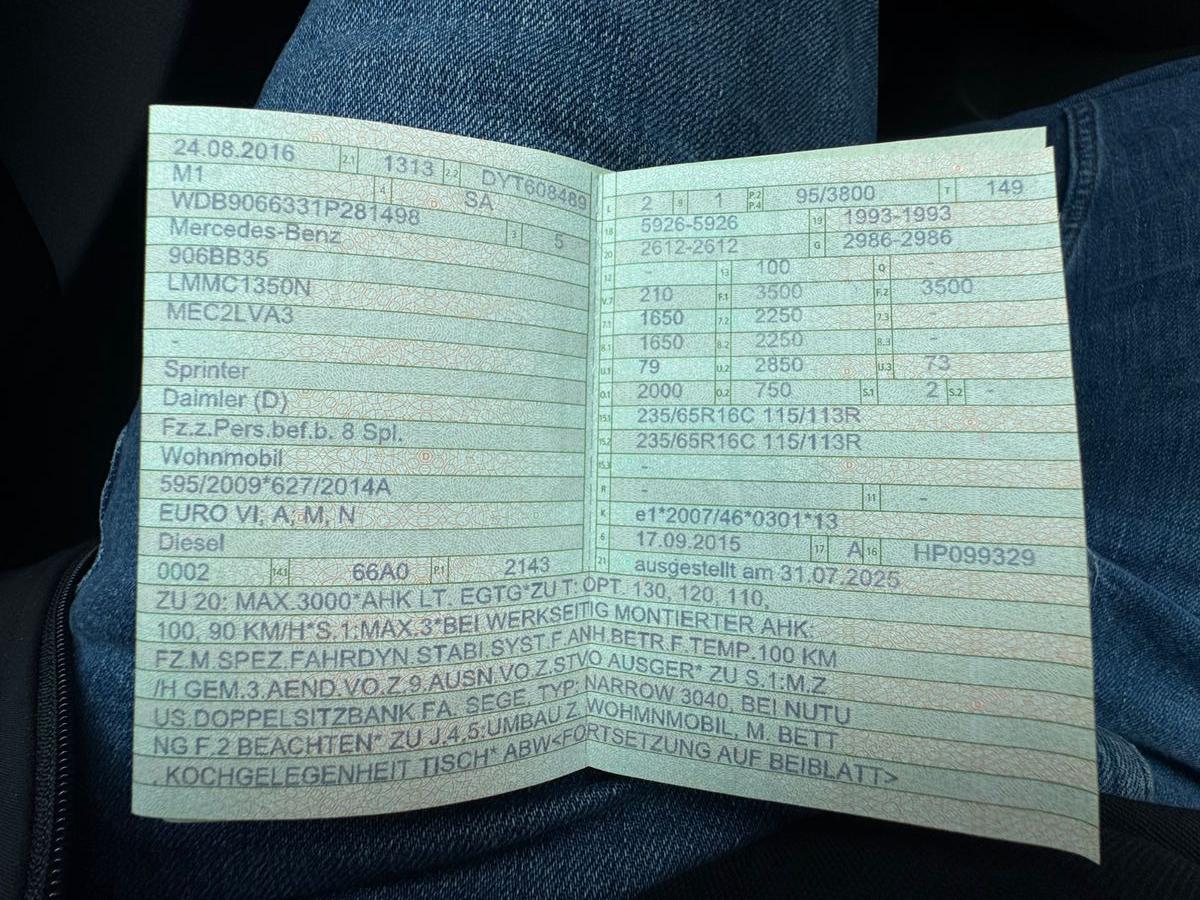 24.08.2016 2.1 1313 2.2 DYT608489
M1 4 SA
WDB9066331P281498
Mercedes-Benz 3 5
906BB35
LMMC1350N
MEC2LVA3
-
Sprinter
Daimler (D)
Fz.z.Pers.bef.b. 8 Spl.
Wohnmobil
595/2009*627/2014A
EURO VI, A, M, N
Diesel
0002 14.1 66A0 P.1 2143
L 2 9 1 P.2 P.4 95/3800 T 149
18 5926-5926 19 1993-1993
20 2612-2612 G 2986-2986
12 - 13 100 Q -
V.7 210 F.1 3500 F.2 3500
7.1 1650 7.2 2250 7.3 -
8.1 1650 8.2 2250 8.3 -
U.1 79 U.2 2850 U.3 73
O.1 2000 O.2 750 S.1 2 S.2 -
15.1 235/65R16C 115/113R
15.2 235/65R16C 115/113R
15.3 -
R - 11 -
K e1*2007/46*0301*13
6 17.09.2015 17 A 16 HP099329
21 ausgestellt am 31.07.2025
ZU 20: MAX.3000*AHK LT. EGTG*ZU T: OPT. 130, 120, 110,
100, 90 KM/H*S.1:MAX.3*BEI WERKSEITIG MONTIERTER AHK:
FZ.M.SPEZ.FAHRDYN.STABI.SYST.F.ANH BETR.F.TEMP.100 KM
/H GEM.3.AEND.VO.Z.9.AUSN.VO.Z.STVO AUSGER* ZU S.1:M.Z
US.DOPPELSITZBANK.FA. SEGE, TYP: NARROW 3040, BEI NUTU
NG F.2 BEACHTEN* ZU J.4,5:UMBAU Z. WOHMNMOBIL, M. BETT
, KOCHGELEGENHEIT TISCH* ABW<FORTSETZUNG AUF BEIBLATT>